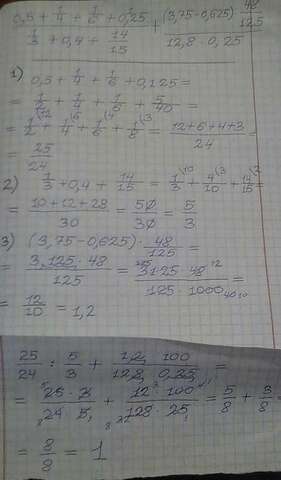 (0,5 + 1/4 + 1/6 + 0,125) / (1/3 + 0,4 + 14/15) + ((3,75 - 0,625) · 48/125) / (12,8 · 0,25)
1) 0,5 + 1/4 + 1/6 + 0,125 =
= 1/2 + 1/4 + 1/6 + 5/40 =
= 1/2 + 1/4 + 1/6 + 1/8 = (12+6+4+3)/24 =
= 25/24
2) 1/3 + 0,4 + 14/15 = 1/3 + 4/10 + 14/15 =
= (10+12+28)/30 = 50/30 = 5/3
3) (3,75 - 0,625) · 48/125 =
= (3,125 · 48)/125 = (3125 · 48)/(125 · 1000) =
= 12/10 = 1,2
25/24 : 5/3 + (1,2 · 100)/(12,8 · 0,25) =
= (25 · 3)/(24 · 5) + (12 · 100)/(128 · 25) = 5/8 + 3/8 =
= 8/8 = 1